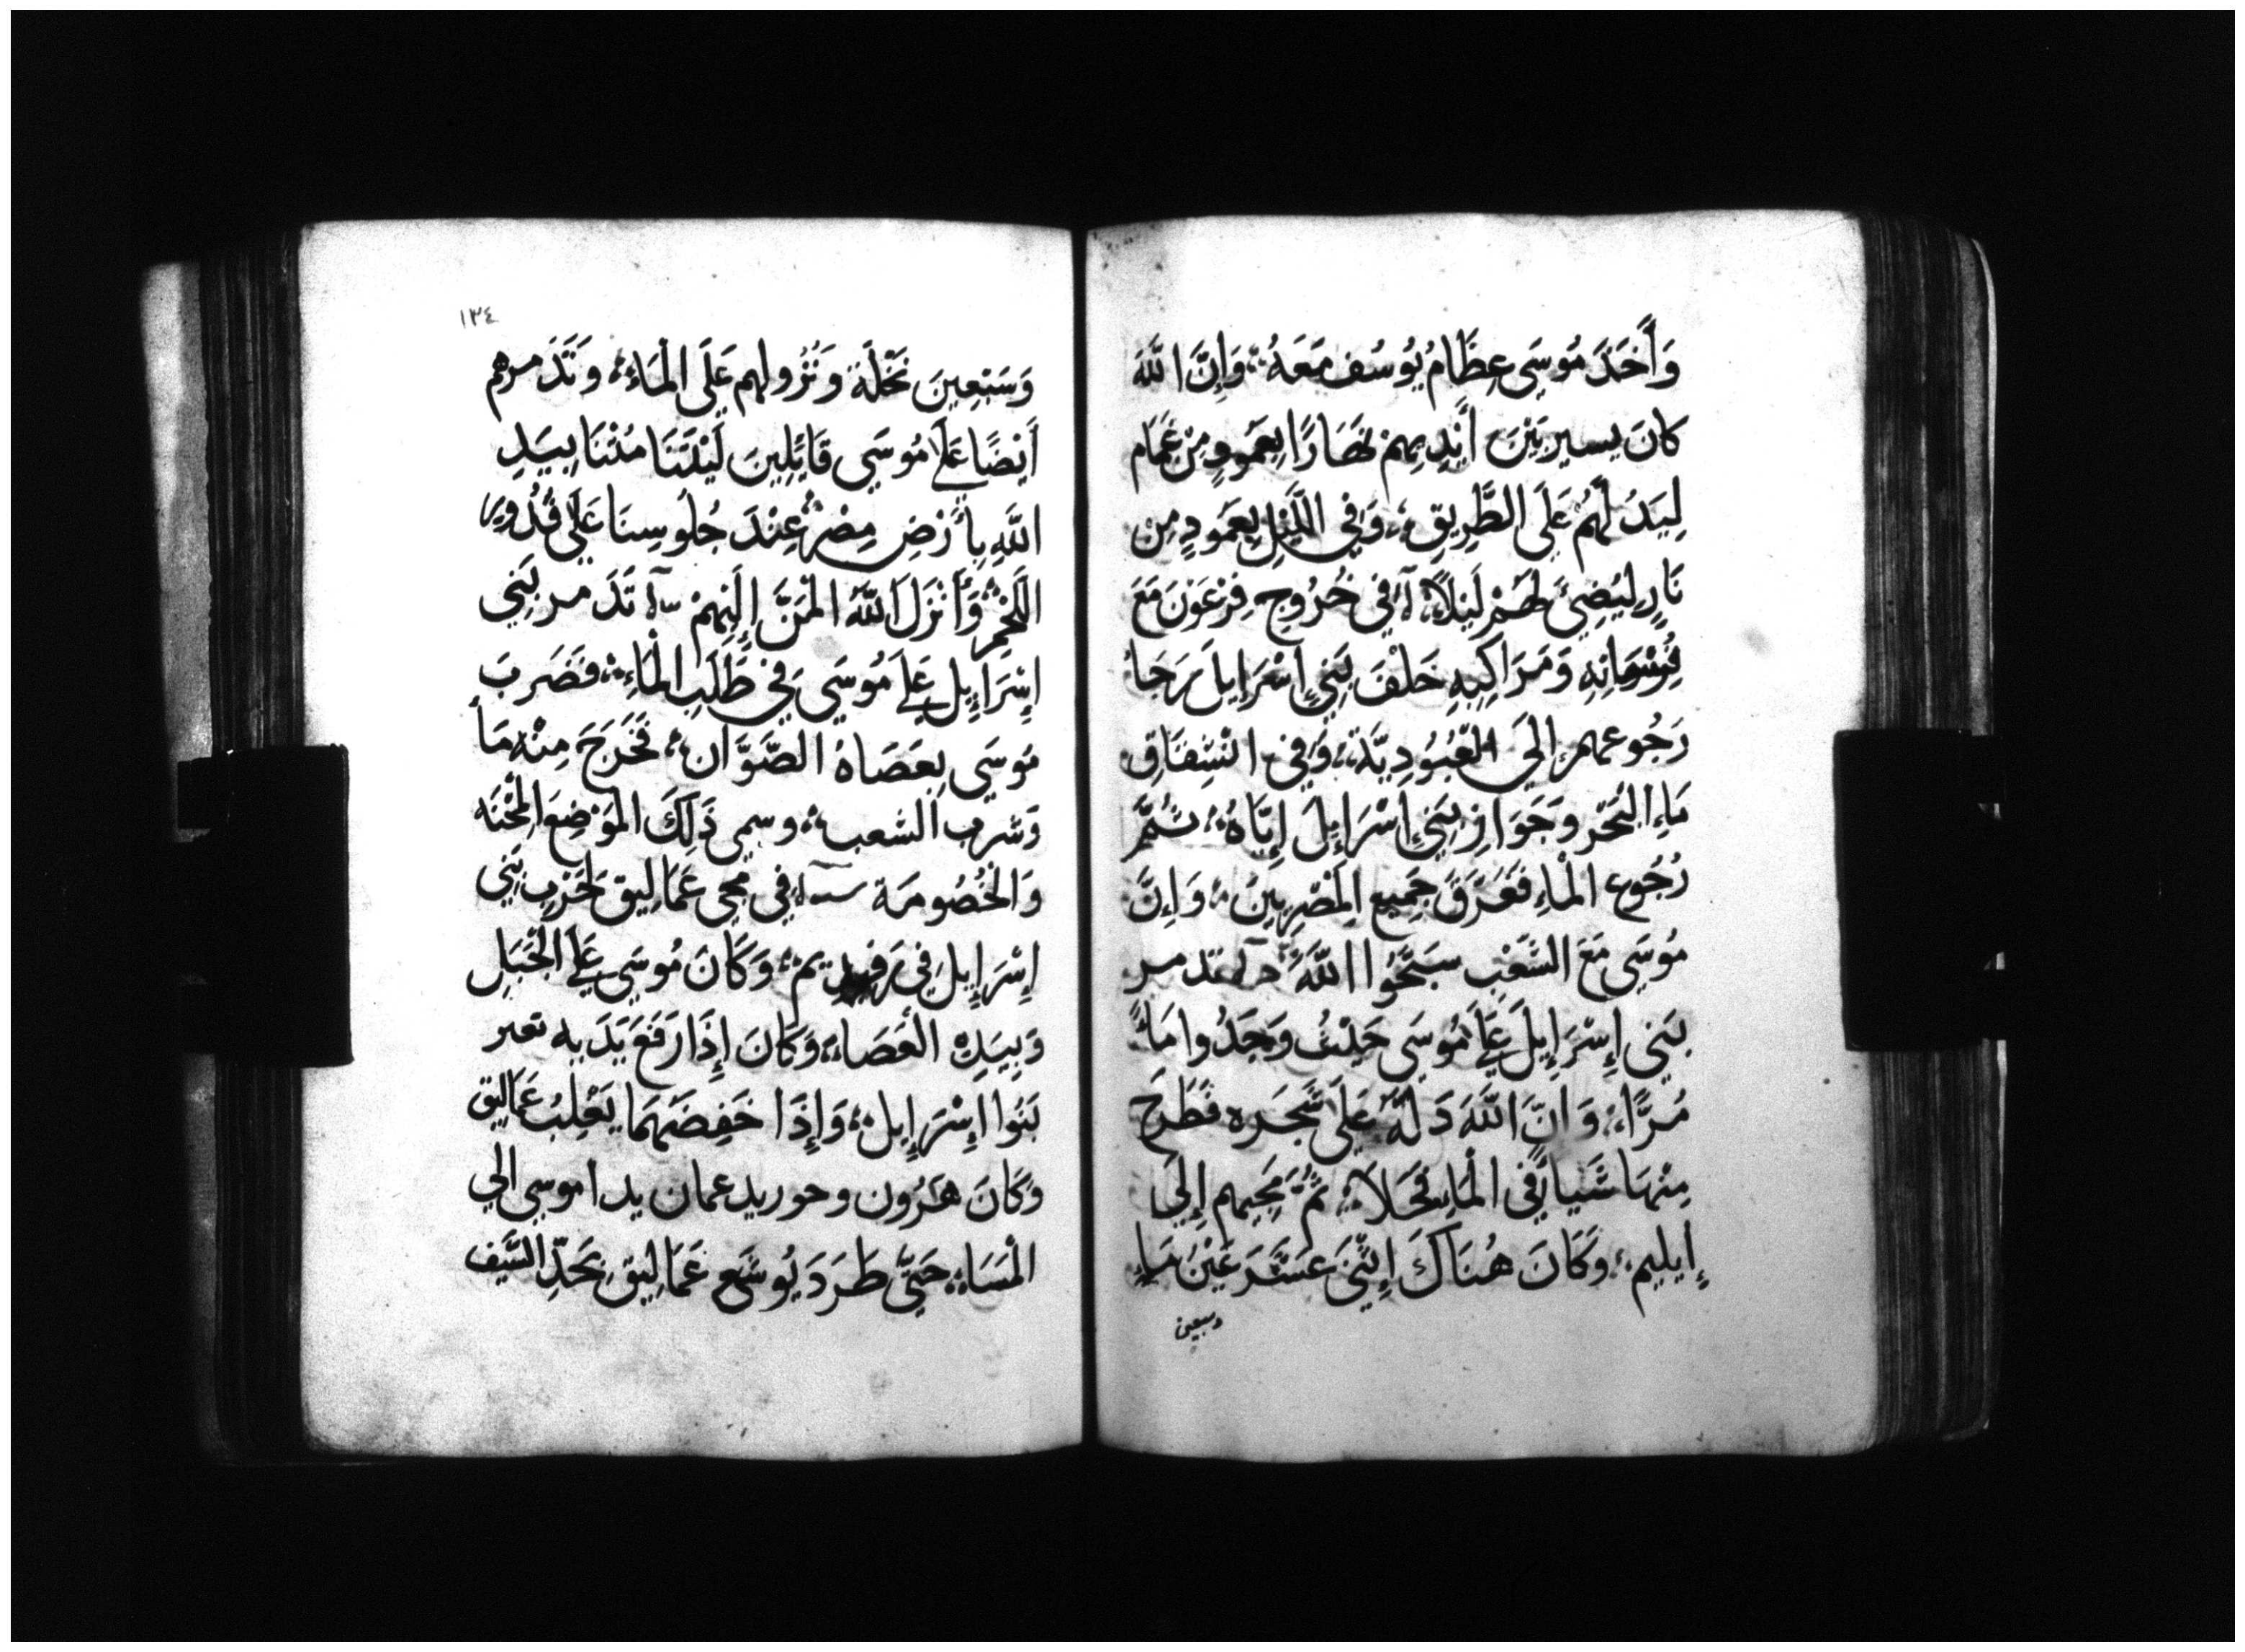 وَأَخَذَ مُوسَى عِظَامُ يُوسُف مَعَهُ وَإِنَّ اللَّهَ
كانَ يسير بَيْنَ أَيْدِيهِمْ نَهَارًا بِعَمُودٍ مِنْ غَمَام
لِيَدُ لَهُمْ عَلَى الطَّرِيقِ وَفِي اللَّيْلِ بِعَمُودٍ مِنْ
نَارٍ لِيُضِيَ لَهُمْ لَيْلًا في خُرُوجِ فِرْعَوْنَ مَعَ
فُرْسَانِهِ وَمَرَاكِبِهِ خَلْفَ بَنِي إِسْرَايلَ رَجَا
رَجُوعهم إلَى العُبُودِيَّة وَفِي انْشِقَاقِ
مَاءِ الْبَحْر وجَوَاز بَنِي إِسْرَايِلَ إِيَّاهُ ثُمَّ
رُجُوع الْمَاءِ فَغَرَقَ جَمِيع الْمَصْرِيِينَ وَإِنَّ
مُوسَى مَعَ الشَّعْبِ سَبَّحُوا اللَّهَ تدمر
بَنِي إِسْرَايِلَ عَلَى مُوسَى حَيْثُ وَجَدُوا مَاءً
مُرًّا وَانَّ اللَّهَ دَلَّهُ عَلَى شَجَره فَطَرَحَ
مِنْهَا شَيأ فِي الْمَاءِ فَحَلَا ثُمَّ مَجِيهم إِلَى
إيليم وَكَانَ هُنَاكَ إِثْنَى عَشَرَ عَيْنُ مَاءٍ
وسبعين
١٣٤
وَسَبْعِينَ نَخْلَةَ وَنُزُولهم عَلَى الْمَاءِ وَتَذَمرهم
أَيْضًا عَلَى مُوسَى قَايِلِينَ لَيْتَنَا مُتْنَا بِيَدِ
اللَّهِ بِأَرْضِ مِصْرَ عِنْدَ جُلُوسِنَا عَلَى قُدُورِ
اللَّحْمِ وَأَنْزَلَ اللَّهُ الْمَنَّ إِلَيْهِمْ تَدَمر بَنِي
إِسْرَايِيل عَلَى مُوسَى فِي طَلَبِ الْمَاءِ فَضَرَبَ
مُوسَى بِعَصَاهُ الصَّوَّان فَخَرَجَ مِنْهُ مَاً
وَشربَ الشعب وسمي ذَلِكَ الْمَوْضِعَ الْمِحْنَه
وَالْخُصُومَة في مجى عَمَالِيق لِحَرْبِ بَنِي
إِسْرَايِيلَ فِي رَفِيدِيم وَكَانَ مُوسَى عَلَى الْجَبَلِ
وَبِيَدِهِ الْعَصَاءُ وَكَانَ إِذَا رَفَعَ يَدَيه تعبر
بَنُوا إِسْرَايِيل وَإِذَا خَفِضَهُمَا يَغْلِبُ عَمَالِيق
وَكَانَ هَرُون وحور يدعمان يدا موسى الي
الْمَسَاءِ حَتَّى طَرَدَ يُوشَع عَمَالِيق بِحَدِّ السَّيف